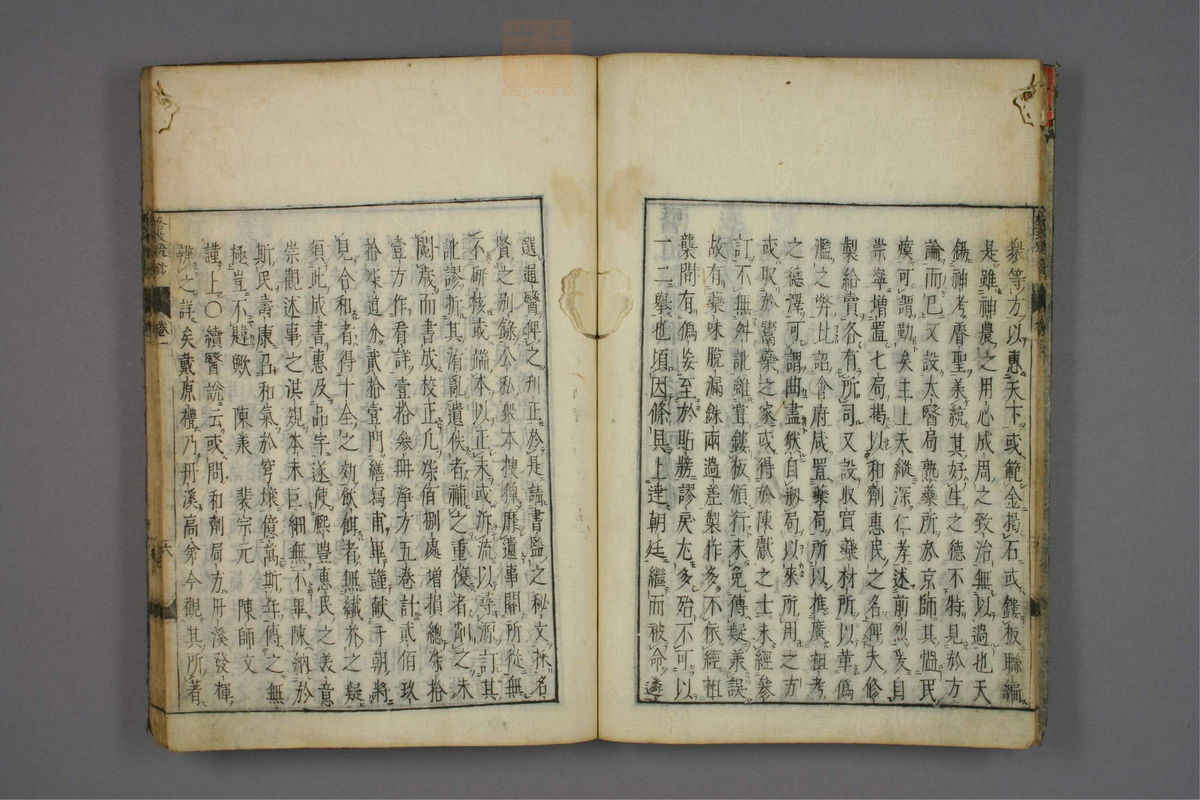 衆等方以惠天下或範金揭石或鏤板聯編
是雖神農之用心成周之致治無以過也天
錫神考膺聖美統其好生之德不特見於方
論而已又設太醫局熟藥所於京師其恤民
瘼可謂勤矣主上天縱深仁孝述前烈爰自
崇寧增置七局揭以和劑惠民之名俾夫修
製給賣各有所司又設收買藥材所以革偽
濫之弊比詔會府咸置藥局所以推廣祖考
之德澤可謂曲盡然自刱局以來所用之方
或取於鬻藥之家或得於陳獻之士未經參
訂不無舛訛雖嘗鏤板頒行未免傳疑兼誤
故有藥味脫漏銖兩過差製作多不依經祖
襲間有偽妄至於貼牓謬戾尤多殆不可以
一二舉也頃因條具上達朝廷繼而被命遴
選通醫俾之刋正於是請書監之秘文採名
賢之別錄公私衆本搜獵靡遺事關所從無
不研核或端本以正末或泝流以尋源訂其
訛謬折其淆亂遺佚者補之重復者削之未
閱歲而書成校正凡柒佰捌處增損總柒拾
壹方作看詳壹拾參冊淨方五卷計貳佰玖
拾柒道分貳拾壹門繕寫甫畢謹献于朝將
見合和者得十全之効飲餌者無纖芥之疑
須此成書惠及品宇遂使熙豐惠民之美意
崇觀述事之淇規本末巨細無不畢陳納於
斯民壽康召和氣於穹壤億萬斯年傳之無
極豈不韙歟　陳承　裴宗元　陳師文
謹上〇續醫說云或問和劑局方丹溪發揮
辨之詳矣戴原禮乃丹溪高弟今觀其所著
卷一